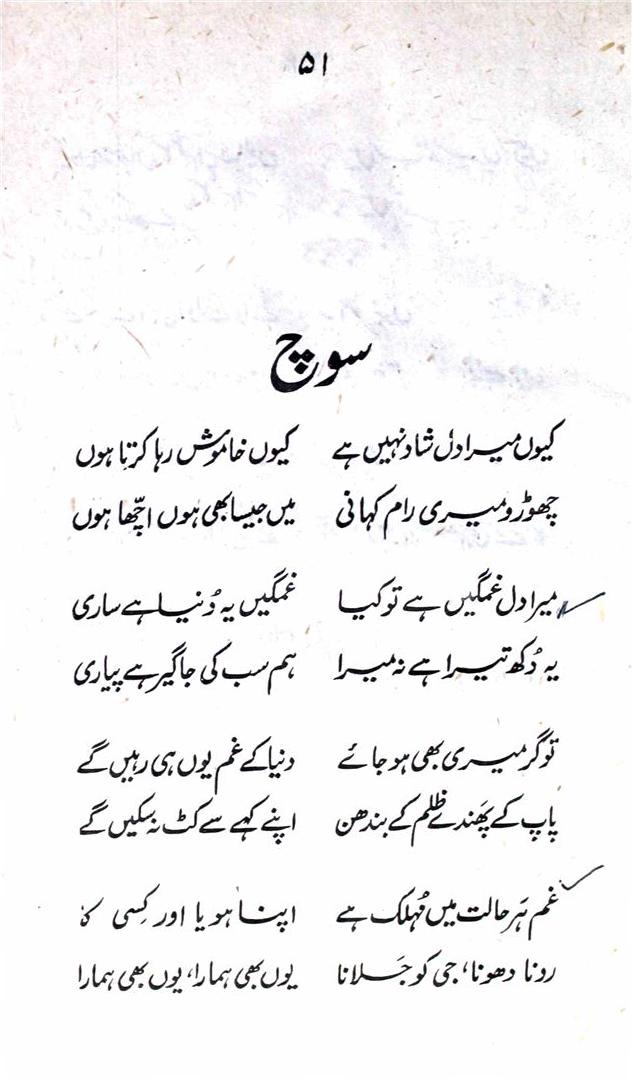 ۵۱
سوچ
کیوں میرا دل شاد نہیں ہے کیوں خاموش رہا کرتا ہوں
چھوڑو میری رام کہانی میں جیسا بھی ہوں اچّھا ہوں
میرا دل غمگیں ہے تو کیا غمگیں یہ دُنیا ہے ساری
یہ دُکھ تیرا ہے نہ میرا ہم سب کی جاگیر ہے پیاری
تو گر میری بھی ہو جائے دنیا کے غم یوں ہی رہیں گے
پاپ کے پَھندے ظلم کے بندھن اپنے کہے سے کٹ نہ سکیں گے
غم ہَر حالت میں مُہلک ہے اپنا ہو یا اور کِسی کا
رونا دھونا، جی کو جَلانا یوں بھی ہمارا، یوں بھی ہمارا